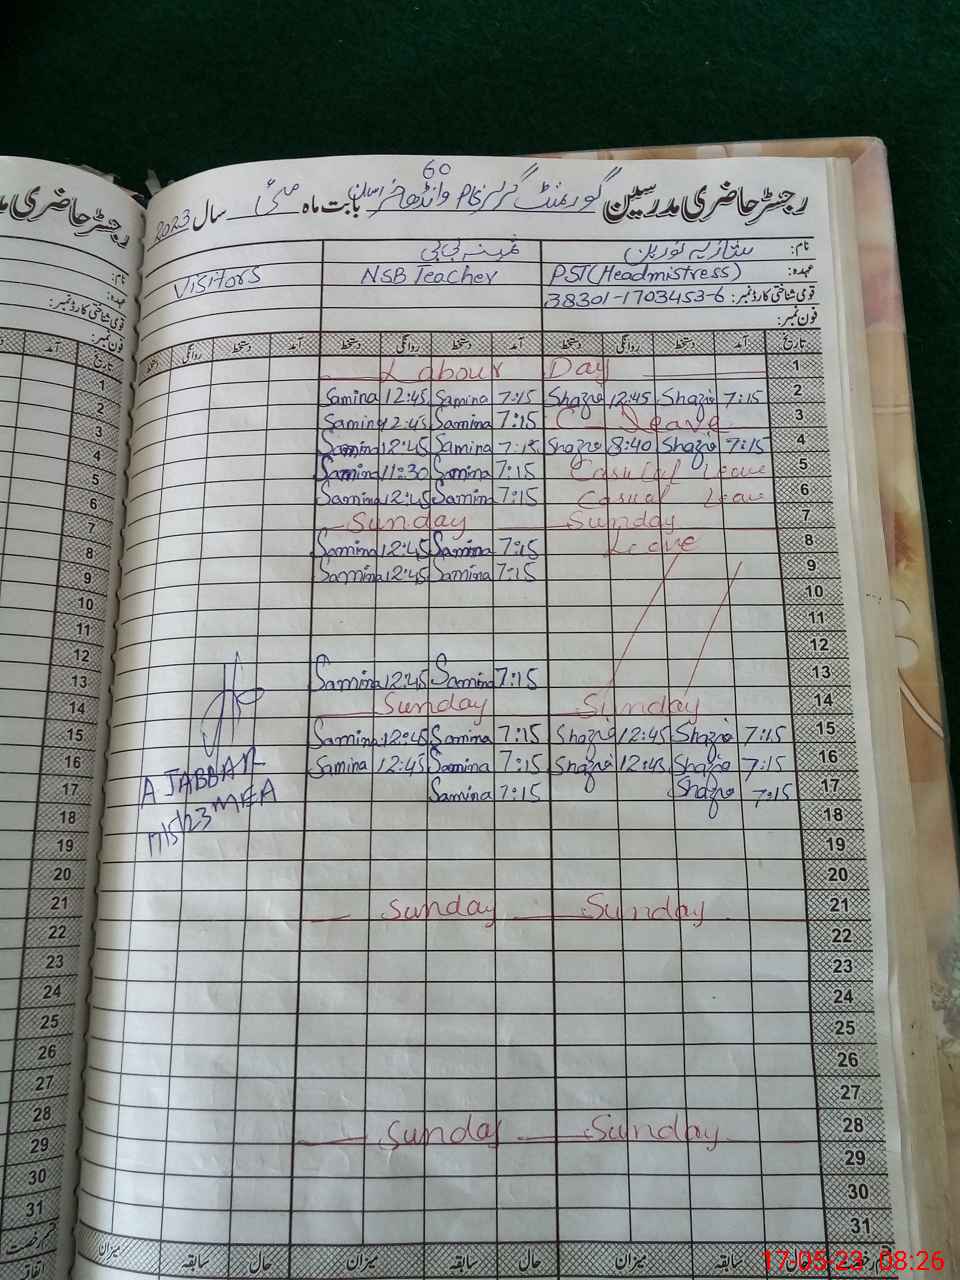 60
رجسٹر حاضری مدرسین گورنمنٹ گرلز وانڈھا بابت ماہ مئی سال 2023
نام: شازیہ نورین ثمینہ بی بی
عہدہ: PST (Headmistress) NSB Teacher Visitors
قومی شناختی کارڈ نمبر: 38301-1703453-6
فون نمبر:
تاریخ آمد دستخط روانگی دستخط آمد دستخط روانگی دستخط آمد دستخط روانگی دستخط
Labour Day 1
Samina 12:45 Samina 7:15 Shazia 12:45 Shazia 7:15 2
Samina 12:45 Samina 7:15 C - Leave 3
Samina 12:45 Samina 7:15 Shazia 8:40 Shazia 7:15 4
Samina 11:30 Samina 7:15 Casual Leave 5
Samina 12:45 Samina 7:15 Casual Leave 6
Sunday Sunday 7
Samina 12:45 Samina 7:15 Leave 8
Samina 12:45 Samina 7:15 9
10
11
12
Samina 12:45 Samina 7:15 13
Sunday Sunday 14
Samina 12:45 Samina 7:15 Shazia 12:45 Shazia 7:15 15
Samina 12:45 Samina 7:15 Shazia 12:45 Shazia 7:15 16
A JABBAR Samina 7:15 Shazia 7:15 17
17/5/23 MEA 18
19
20
Sunday Sunday 21
22
23
24
25
26
27
Sunday Sunday 28
29
30
31
حال سابقہ میزان حال سابقہ میزان حال سابقہ میزان
رجسٹر حاضری
نام:
عہدہ:
قومی شناختی کارڈ نمبر:
فون نمبر:
تاریخ آمد
1
2
3
4
5
6
7
8
9
10
11
12
13
14
15
16
17
18
19
20
21
22
23
24
25
26
27
28
29
30
31
قسم رخصت
17-05-23 08:26